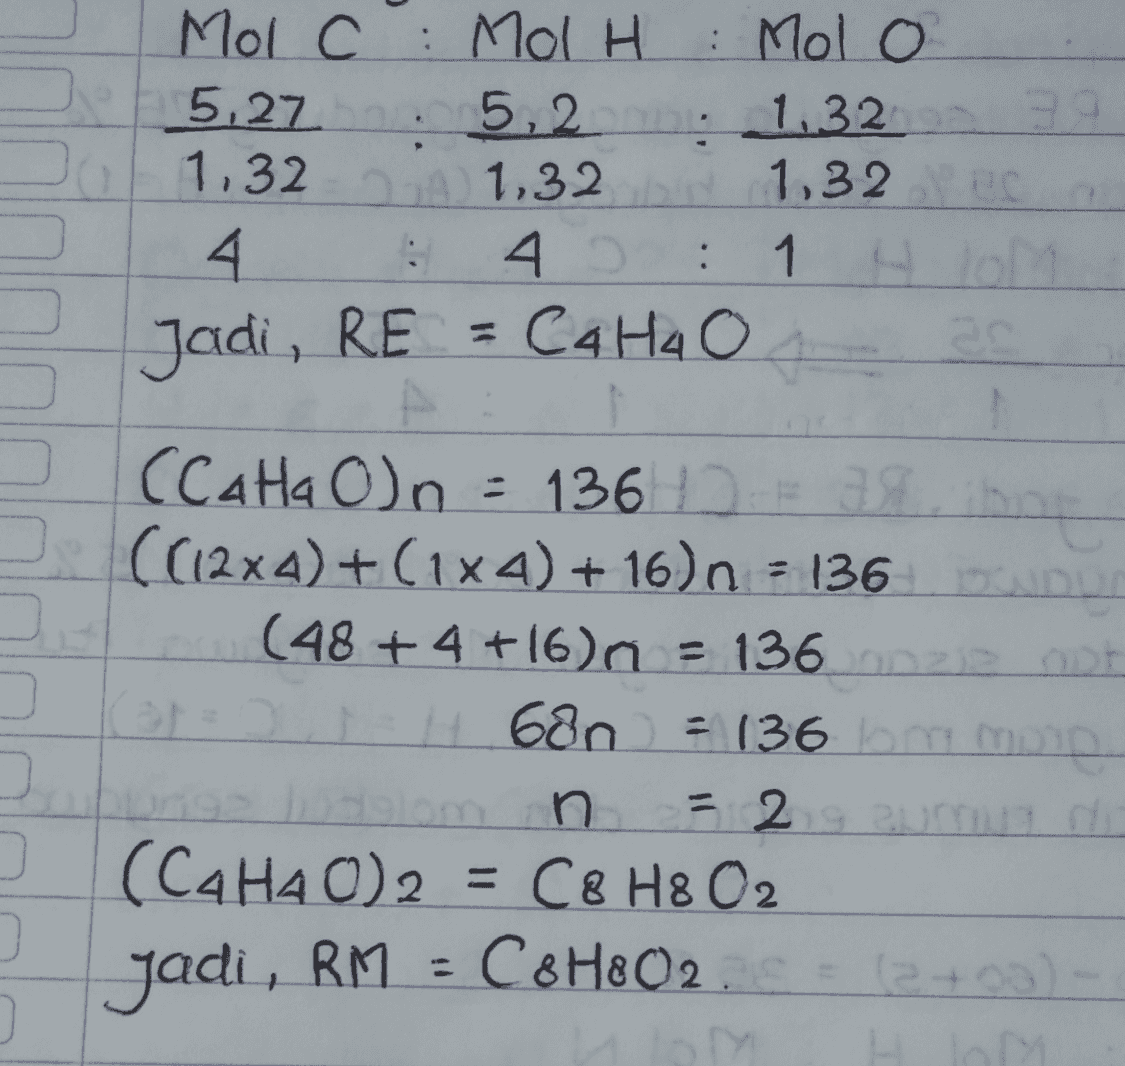 Mol C : Mol H : Mol O
5,27 : 5,2 : 1,32
1,32 1,32 1,32
4 : 4 : 1
Jadi, RE = C4H4O
(C4H4O)n = 136
((12x4)+(1x4)+16)n = 136
(48+4+16)n = 136
68n = 136
n = 2
(C4H4O)2 = C8H8O2
Jadi, RM = C8H8O2.